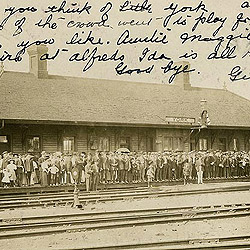 you think of little York a
of the crowd went to play f
you like. Auntie Maggie
at alfreds Ida is all
Good bye.